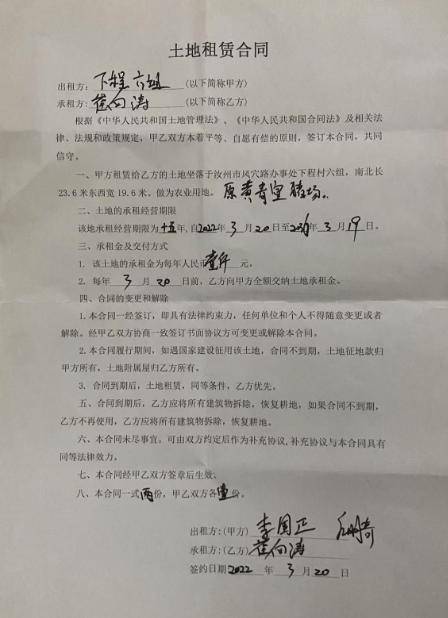 土地租赁合同
出租方：下程六组（以下简称甲方）
承租方：崔向涛（以下简称乙方）
根据《中华人民共和国土地管理法》、《中华人民共和国合同法》及相关法
律、法规和政策规定，甲乙双方本着平等、自愿有偿的原则，签订本合同，共同
信守。
一、甲方租赁给乙方的土地坐落于汝州市风穴路办事处下程村六组，南北长
23.6米东西宽19.6米，做为农业用地。原黄青宣猪场。
二、土地的承租经营期限
该地承租经营期限为十五年，自2022年3月20日至年3月19日。
三、承租金及交付方式
1. 该土地的承租金为每年人民币壹仟元。
2. 每年3月20日前，乙方向甲方全额交纳土地承租金。
四、合同的变更和解除
1.本合同一经签订，即具有法律约束力，任何单位和个人不得随意变更或者
解除。经甲乙双方协商一致签订书面协议方可变更或解除本合同。
2.本合同履行期间，如遇国家建设征用该土地，合同不到期，土地征地款归
甲方所有，土地附属屋归乙方所有。
3. 合同到期后，土地租赁，同等条件，乙方优先。
五、合同到期后，乙方应将所有建筑物拆除，恢复耕地，如果合同不到期，
乙方不再使用，乙方应将所有建筑物拆除，恢复耕地。
六、本合同未尽事宜，可由双方约定后作为补充协议，补充协议与本合同具有
同等法律效力。
七、本合同经甲乙双方签章后生效。
八、本合同一式两份，甲乙双方各壹份。
出租方：（甲方）李国正
承租方：（乙方）崔向涛
签约日期2022年3月20日